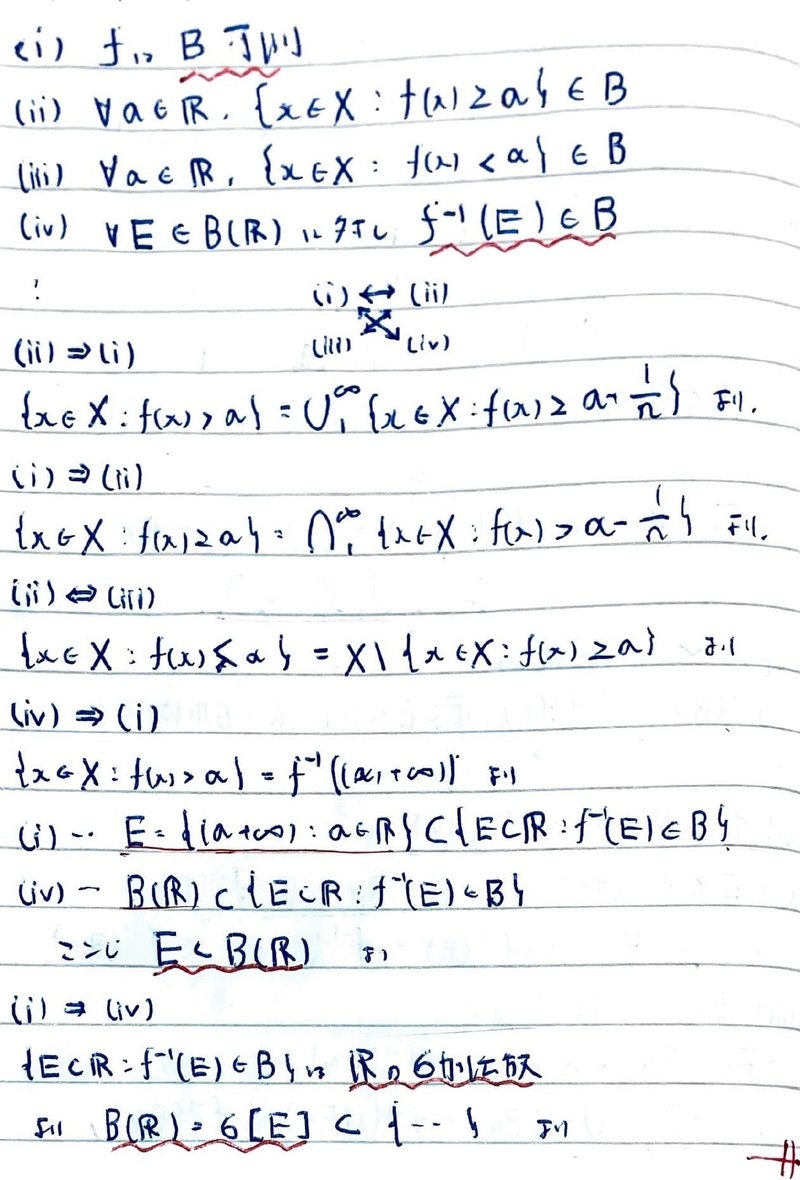 (i) f は B 可測
(ii) ∀a∈ℝ, {x∈X : f(x) ≥ a} ∈ B
(iii) ∀a∈ℝ, {x∈X : f(x) < a} ∈ B
(iv) ∀E∈B(ℝ) に対し f⁻¹(E) ∈ B
⋮ (i) ↔ (ii)
(iii) (iv)
(ii) ⇒ (i)
{x∈X : f(x) > a} = ∪₁^∞ {x∈X : f(x) ≥ a+ 1/n} より.
(i) ⇒ (ii)
{x∈X : f(x) ≥ a} = ∩₁^∞ {x∈X : f(x) > a - 1/n} より.
(ii) ⇔ (iii)
{x∈X : f(x) < a} = X \ {x∈X : f(x) ≥ a} より
(iv) ⇒ (i)
{x∈X : f(x) > a} = f⁻¹((a,+∞)) より
(i) ‥ E = {(a+∞) : a∈ℝ} ⊂ {E⊂ℝ : f⁻¹(E) ∈ B}
(iv) - B(ℝ) ⊂ {E⊂ℝ : f⁻¹(E) ∈ B}
ここで E ⊂ B(ℝ) より
(i) ⇒ (iv)
{E⊂ℝ : f⁻¹(E) ∈ B} は ℝの σ加法族
より B(ℝ) = σ[E] ⊂ {‥} より